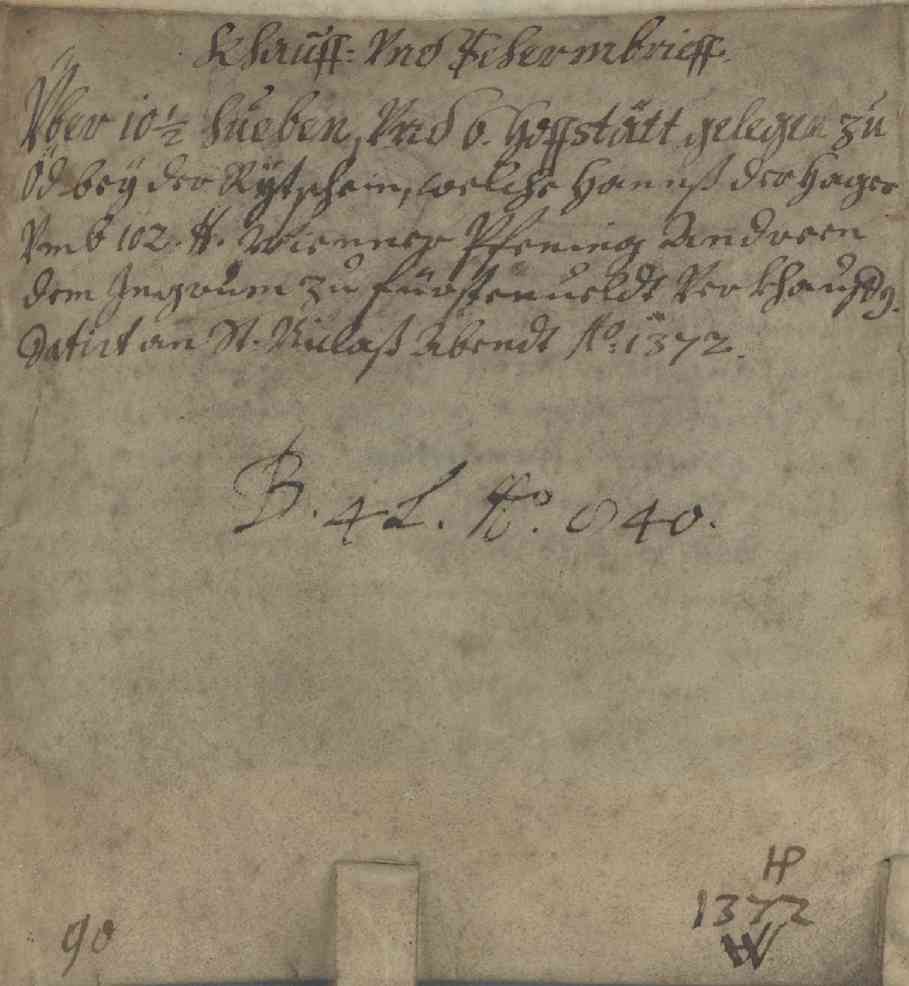 Khauff: Vnd Schermbrieff.
Vber 10 ½ Hueben, Vnd 6. Hoffstätt gelegen zu
Öd bey der Rytschein, welche Hannß der Hager
Vmb 102 ₰. Wienner Pfening Andreen
dem Ingrum zu Fürstenueldt Verkhaufft
Datirt an St. Niclaß Abendt Ao: 1372.
B. 4 L. No. 640.
HP
1372
W
90